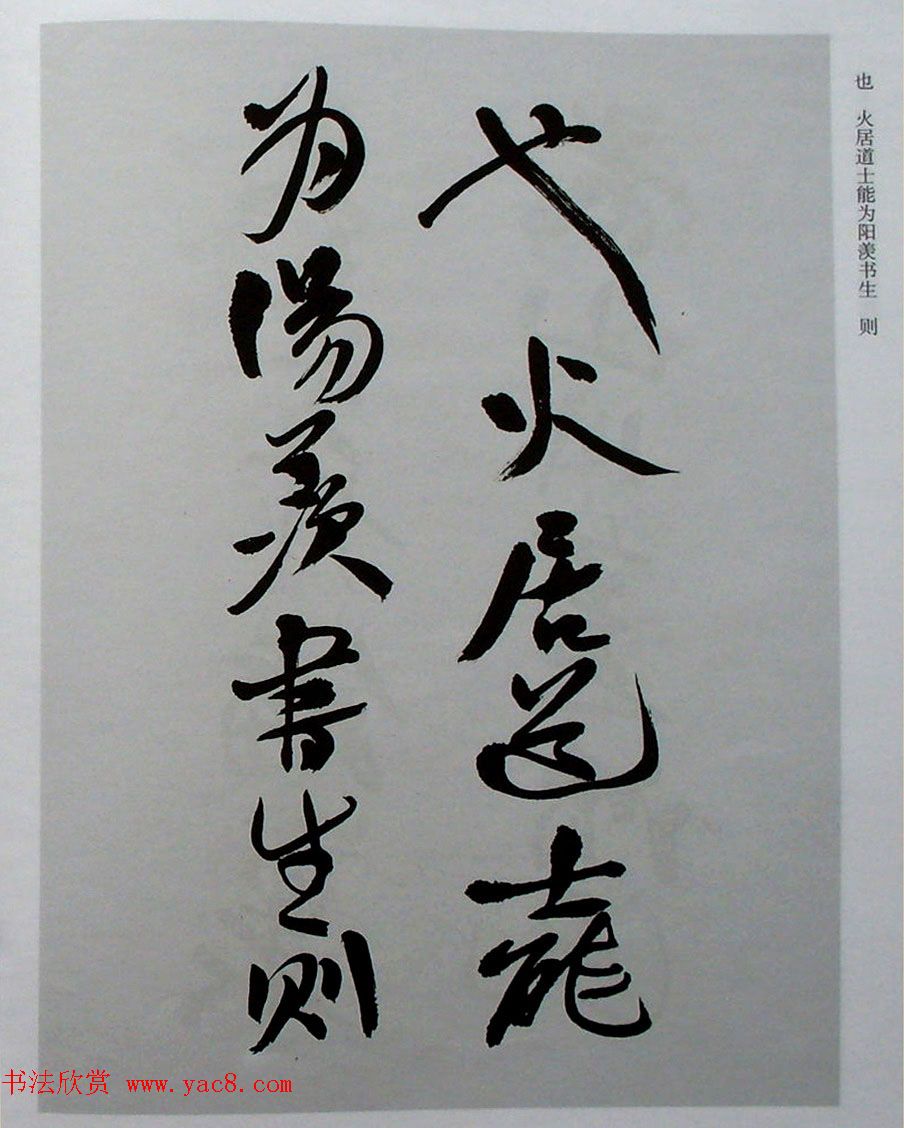 也 火居道士能为阳羡书生 则
也火居道士能
为陽羡書生则
书法欣赏 www.yac8.com